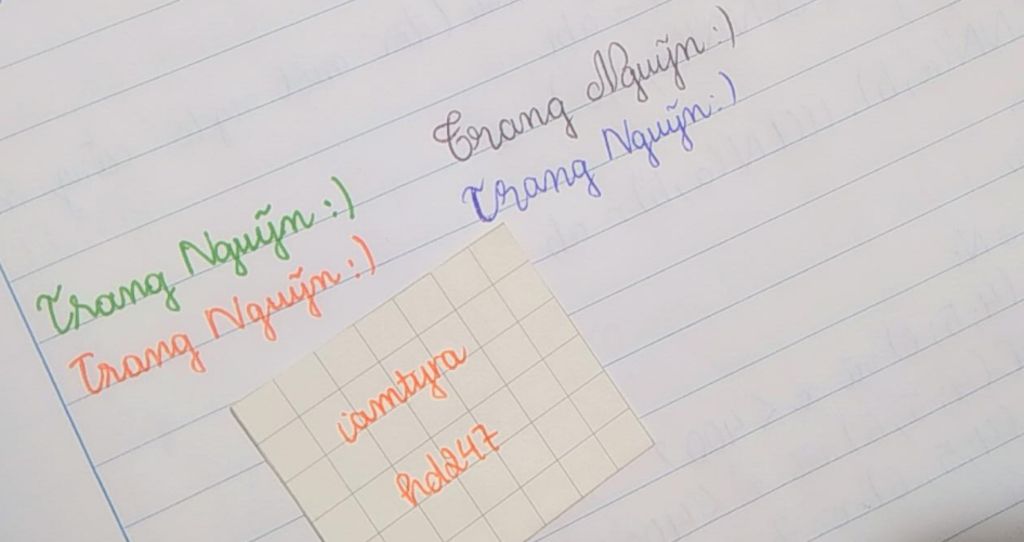 Trang Nguỹn :)
Trang Nguỹn :)
Trang Nguỹn :)
Trang Nguỹn :)
iamtyra
hd247